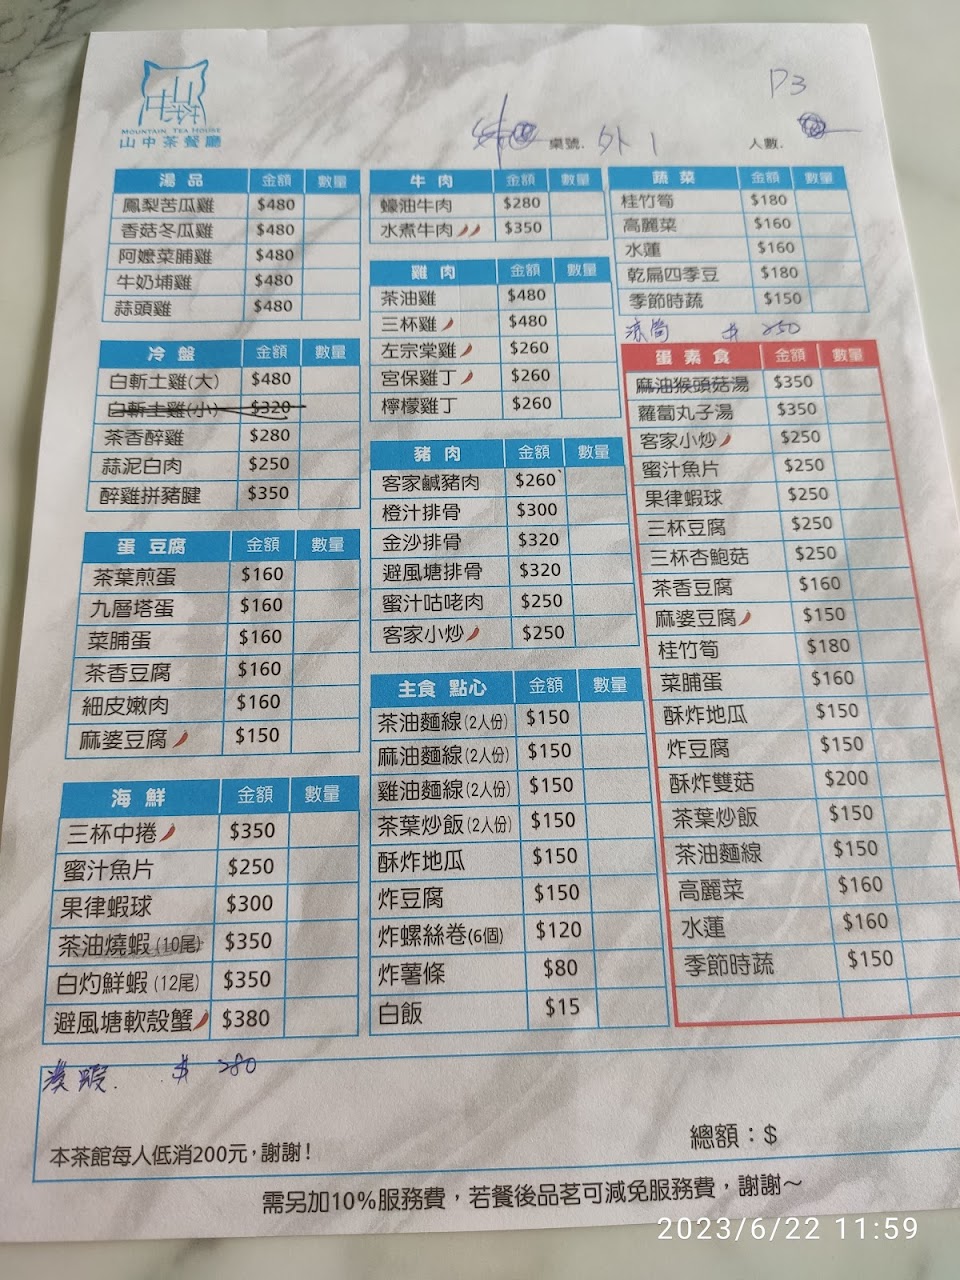 山中茶
MOUNTAIN TEA HOUSE
山中茶餐廳
P3
桌號. 外 1
人數.
湯品 金額 數量
鳳梨苦瓜雞 $480
香菇冬瓜雞 $480
阿嬤菜脯雞 $480
牛奶埔雞 $480
蒜頭雞 $480
冷盤 金額 數量
白斬土雞(大) $480
白斬土雞(小) $320
茶香醉雞 $280
蒜泥白肉 $250
醉雞拼豬腱 $350
蛋 豆腐 金額 數量
茶葉煎蛋 $160
九層塔蛋 $160
菜脯蛋 $160
茶香豆腐 $160
細皮嫩肉 $160
麻婆豆腐 $150
海鮮 金額 數量
三杯中捲 $350
蜜汁魚片 $250
果律蝦球 $300
茶油燒蝦(10尾) $350
白灼鮮蝦(12尾) $350
避風塘軟殼蟹 $380
牛肉 金額 數量
蠔油牛肉 $280
水煮牛肉 $350
雞肉 金額 數量
茶油雞 $480
三杯雞 $480
左宗棠雞 $260
宮保雞丁 $260
檸檬雞丁 $260
豬肉 金額 數量
客家鹹豬肉 $260
橙汁排骨 $300
金沙排骨 $320
避風塘排骨 $320
蜜汁咕咾肉 $250
客家小炒 $250
主食 點心 金額 數量
茶油麵線(2人份) $150
麻油麵線(2人份) $150
雞油麵線(2人份) $150
茶葉炒飯(2人份) $150
酥炸地瓜 $150
炸豆腐 $150
炸螺絲卷(6個) $120
炸薯條 $80
白飯 $15
蔬菜 金額 數量
桂竹筍 $180
高麗菜 $160
水蓮 $160
乾扁四季豆 $180
季節時蔬 $150
$ 250
蛋素食 金額 數量
麻油猴頭菇湯 $350
蘿蔔丸子湯 $350
客家小炒 $250
蜜汁魚片 $250
果律蝦球 $250
三杯豆腐 $250
三杯杏鮑菇 $250
茶香豆腐 $160
麻婆豆腐 $150
桂竹筍 $180
菜脯蛋 $160
酥炸地瓜 $150
炸豆腐 $150
酥炸雙菇 $200
茶葉炒飯 $150
茶油麵線 $150
高麗菜 $160
水蓮 $160
季節時蔬 $150
蝦. $ 280
本茶館每人低消200元，謝謝！
總額：$
需另加10%服務費，若餐後品茗可減免服務費，謝謝～
2023/6/22 11:59